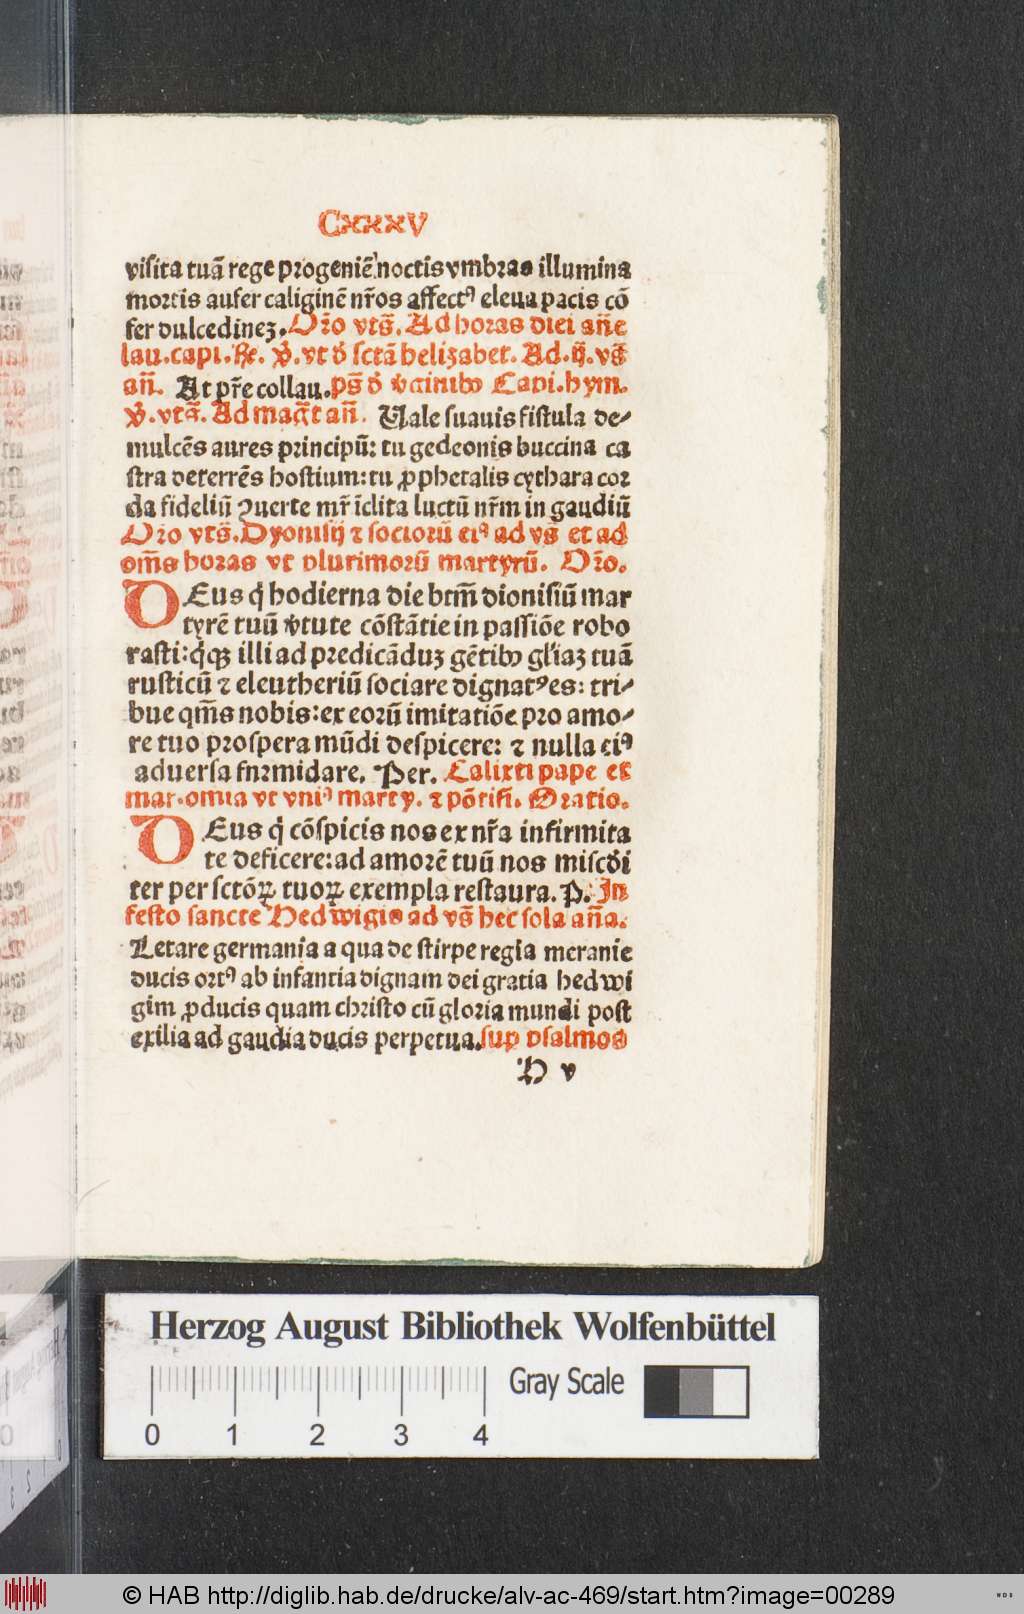 CXXXV
visita tuā rege progeniē noctis vmbras illumina
mortis aufer caliginē nr̄os affectꝰ eleua pacis cō
fer dulcedinez. Or̄o vts̄. Ad horas diei añe
lau. capi. ℟. ℣. vt d̄ sctā helizabet. Ad. ij. vs̄
añ. At pr̄e collau. ps̄ d̄ Capi. hym.
℣. vts̄. Ad mag̅t añ. Uale suauis fistula de⸗
mulcēs aures principū: tu gedeonis buccina ca
stra deterrēs hostium: tu ꝓphetalis cythara cor
da fideliū ꝯuerte mr̄ īclita luctū nr̄m in gaudiū
Or̄o vts̄. Dyonisij ⁊ sociorū eiꝰ ad vs̄ et ad
om̄s horas vt plurimorū martyrū. Or̄o.
DEus q̄ hodierna die btm̄ dionisiū mar
tyrē tuū v̄tute cōstātie in passiōe robo
rasti: illi ad predicāduz gētibꝫ gl̄iaz tuā
rusticū ⁊ eleutheriū sociare dignatꝰ es: tri⸗
bue qm̄s nobis: ex eorū imitatiōe pro amo⸗
re tuo prospera mūdi despicere: ⁊ nulla eiꝰ
aduersa fnrmidare. Per. Calixti pape et
mar. omia vt vniꝰ marty. ⁊ pōtifi. Oratio.
DEus q̄ cōspicis nos ex nr̄a infirmita
te deficere: ad amorē tuū nos miscd̄i
ter per sctōꝝ tuoꝝ exempla restaura. P. In
festo sancte Hedwigis ad vs̄ hec sola aña.
Letare germania a qua de stirpe regia meranie
ducis ortꝰ ab infantia dignam dei gratia hedwi
gim ꝓducis quam christo cū gloria mundi post
exilia ad gaudia ducis perpetua. suꝑ psalmos
H v
Herzog August Bibliothek Wolfenbüttel
Gray Scale
0 1 2 3 4
© HAB http://diglib.hab.de/drucke/alv-ac-469/start.htm?image=00289